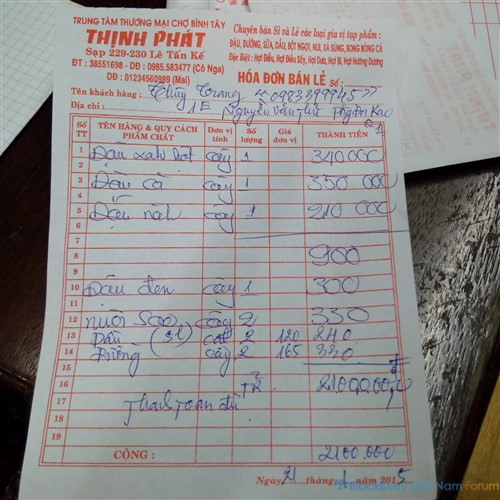 TRUNG TÂM THƯƠNG MẠI CHỢ BÌNH TÂY
THỊNH PHÁT
Sạp 229-230 Lê Tấn Kế
ĐT : 38551698 - DĐ : 0985.583477 (Cô Nga)
DĐ : 01234560989 (Mai)
Chuyên bán Sỉ và Lẻ các loại gia vị tạp phẩm :
ĐẬU, ĐƯỜNG, SỮA, DẦU, BỘT NGỌT, NUI, XÁ SÙNG, BONG BÓNG CÁ
Đặc Biệt : Hột Điều, Hạt Điều Sấy, Hột Dưa, Hột Bí, Hạt Hướng Dương
HÓA ĐƠN BÁN LẺ Số :
Tên khách hàng : Thùy Trang
Địa chỉ : 1E Nguyễn Văn Thủ P Đa Kao
Q1
Số TT TÊN HÀNG & QUY CÁCH PHẨM CHẤT Đơn vị tính Số lượng Giá đơn vị THÀNH TIỀN
1 Đậu xanh hột cây 1 340000
2
3 Đậu cà cây 1 350 000
4
5 Đậu nành cây 1 210 000
6
7
8 900
9
10 Đậu đen cây 1 300
11
12 cây 2 330
13 Dầu 2 120 240
14 Đường cây 2 165 330
15
16 2100.000
17 Thanh toán đủ
18
19
CỘNG : 2100.000
Ngày 21 tháng 1 năm 2015
BlackBerry Việt Nam Forum